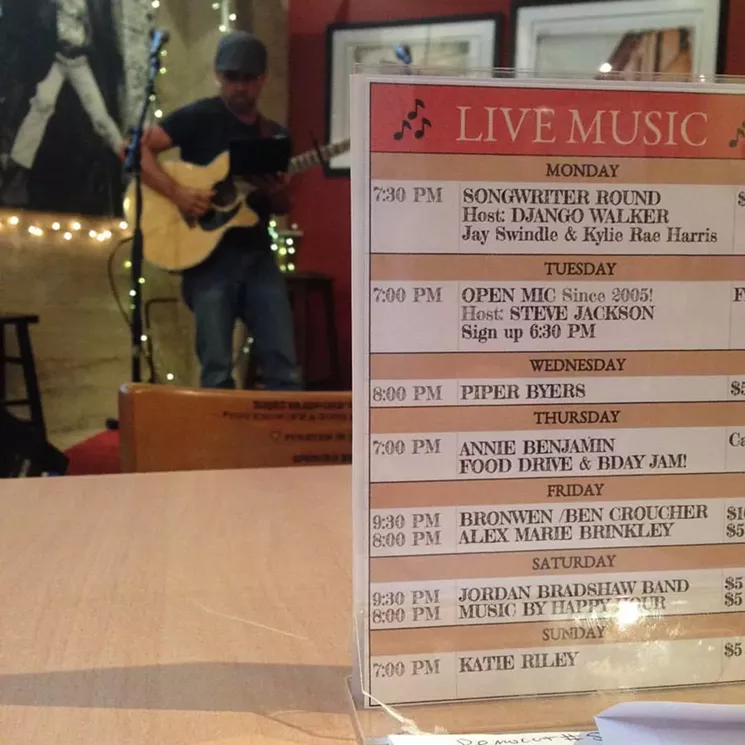 LIVE MUSIC
MONDAY
7:30 PM SONGWRITER ROUND $
Host: DJANGO WALKER
Jay Swindle & Kylie Rae Harris
TUESDAY
7:00 PM OPEN MIC Since 2005! F
Host: STEVE JACKSON
Sign up 6:30 PM
WEDNESDAY
8:00 PM PIPER BYERS $5
THURSDAY
7:00 PM ANNIE BENJAMIN Ca
FOOD DRIVE & BDAY JAM!
FRIDAY
9:30 PM BRONWEN /BEN CROUCHER $1
8:00 PM ALEX MARIE BRINKLEY $5
SATURDAY
9:30 PM JORDAN BRADSHAW BAND $5
8:00 PM MUSIC BY HAPPY HOUR $5
SUNDAY
7:00 PM KATIE RILEY $5